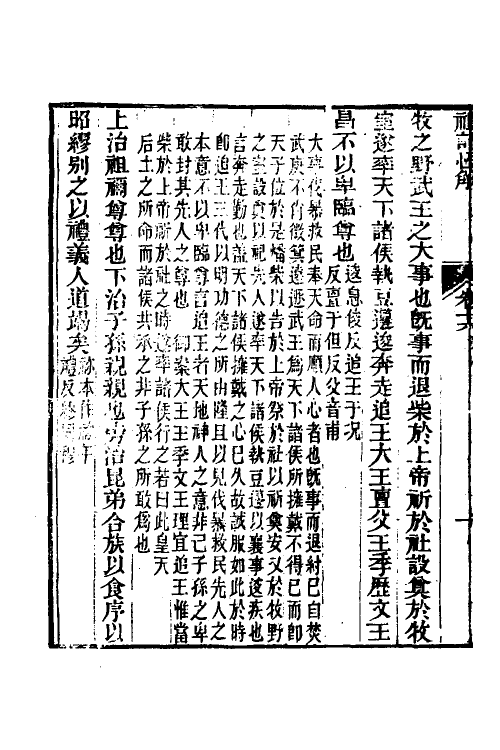 禮記
卷十六
牧之野武王之大事也既事而退柴於上帝祈於社設奠於牧
室遂率天下諸侯執豆籩逡奔走追王大王亶父王季歷文王
昌不以卑臨尊也
逡息俊反追王于況
反亶丁但反父音甫
大事伐暴救民奉天命而順人心者也既事而退紂已自焚
武庚不肖微箕遯遜武王為天下諸侯所擁戴不得已而即
天子位於是燔柴以告於上帝祭於社以祈奠安又於牧野
之室設奠以祀先人遂率天下諸侯執豆籩以襄事逡疾也
言奔走勤也蓋天下諸侯擁戴之心已久故誠服如此於時
即追王三代以明功德之所由隆且以見伐暴救民先人之
本意不以卑臨尊言追王者天地神人之意非己子孫之卑
敢封其先人之尊也 御案大王王季文王理宜追王惟當
柴於上帝祈於社之時遂率諸侯行之若曰此皇天
后土之所命而諸侯共承之非子孫之所敢為也
上治祖禰尊尊也下治子孫親親也旁治昆弟合族以食序以
昭繆別之以禮義人道竭矣
禮反繆